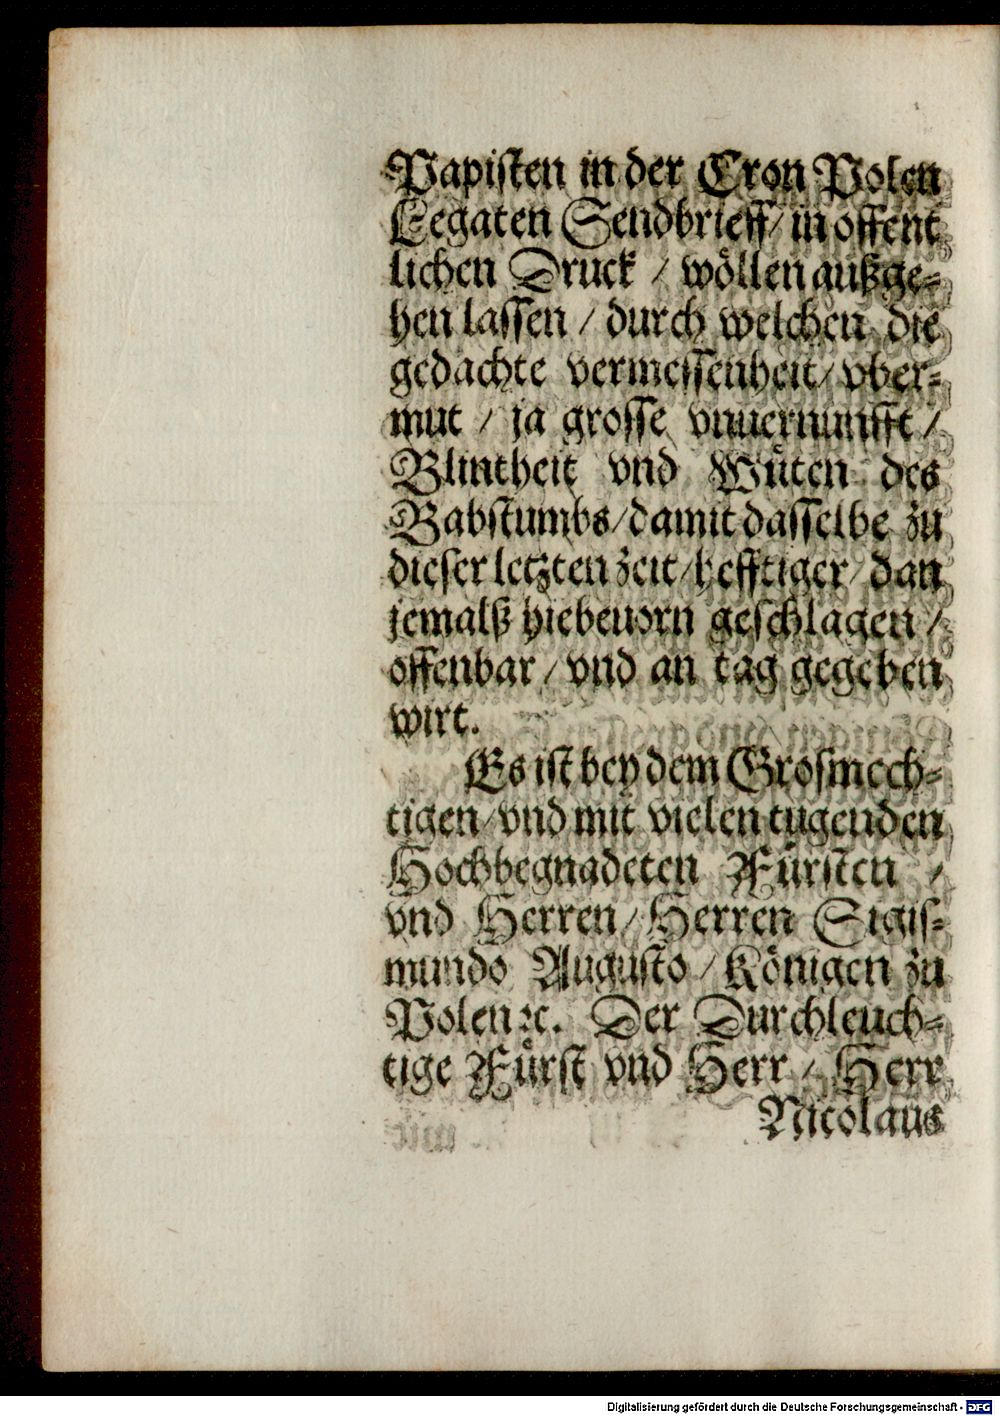 Papisten in der Cron Polen
Legaten Sendbrieff / in offent
lichen Druck / wöllen außge-
hen lassen / durch welchen die
gedachte vermessenheit / vber-
mut / ja grosse vnuernunfft /
Blintheit vnd Wüten des
Babstumbs / damit dasselbe zu
dieser letzten zeit / hefftiger / dan
jemalß hiebeuorn geschlagen /
offenbar / vnd an tag gegeben
wirt.
Es ist bey dem Grosmech-
tigen / vnd mit vielen tugenden
Hochbegnadeten Fürsten /
vnd Herren / Herren Sigis-
mundo Augusto / Königen zu
Polen ꝛc. Der Durchleuch-
tige Fürst vnd Herr / Herr
Nicolaus
Digitalisierung gefördert durch die Deutsche Forschungsgemeinschaft - DFG